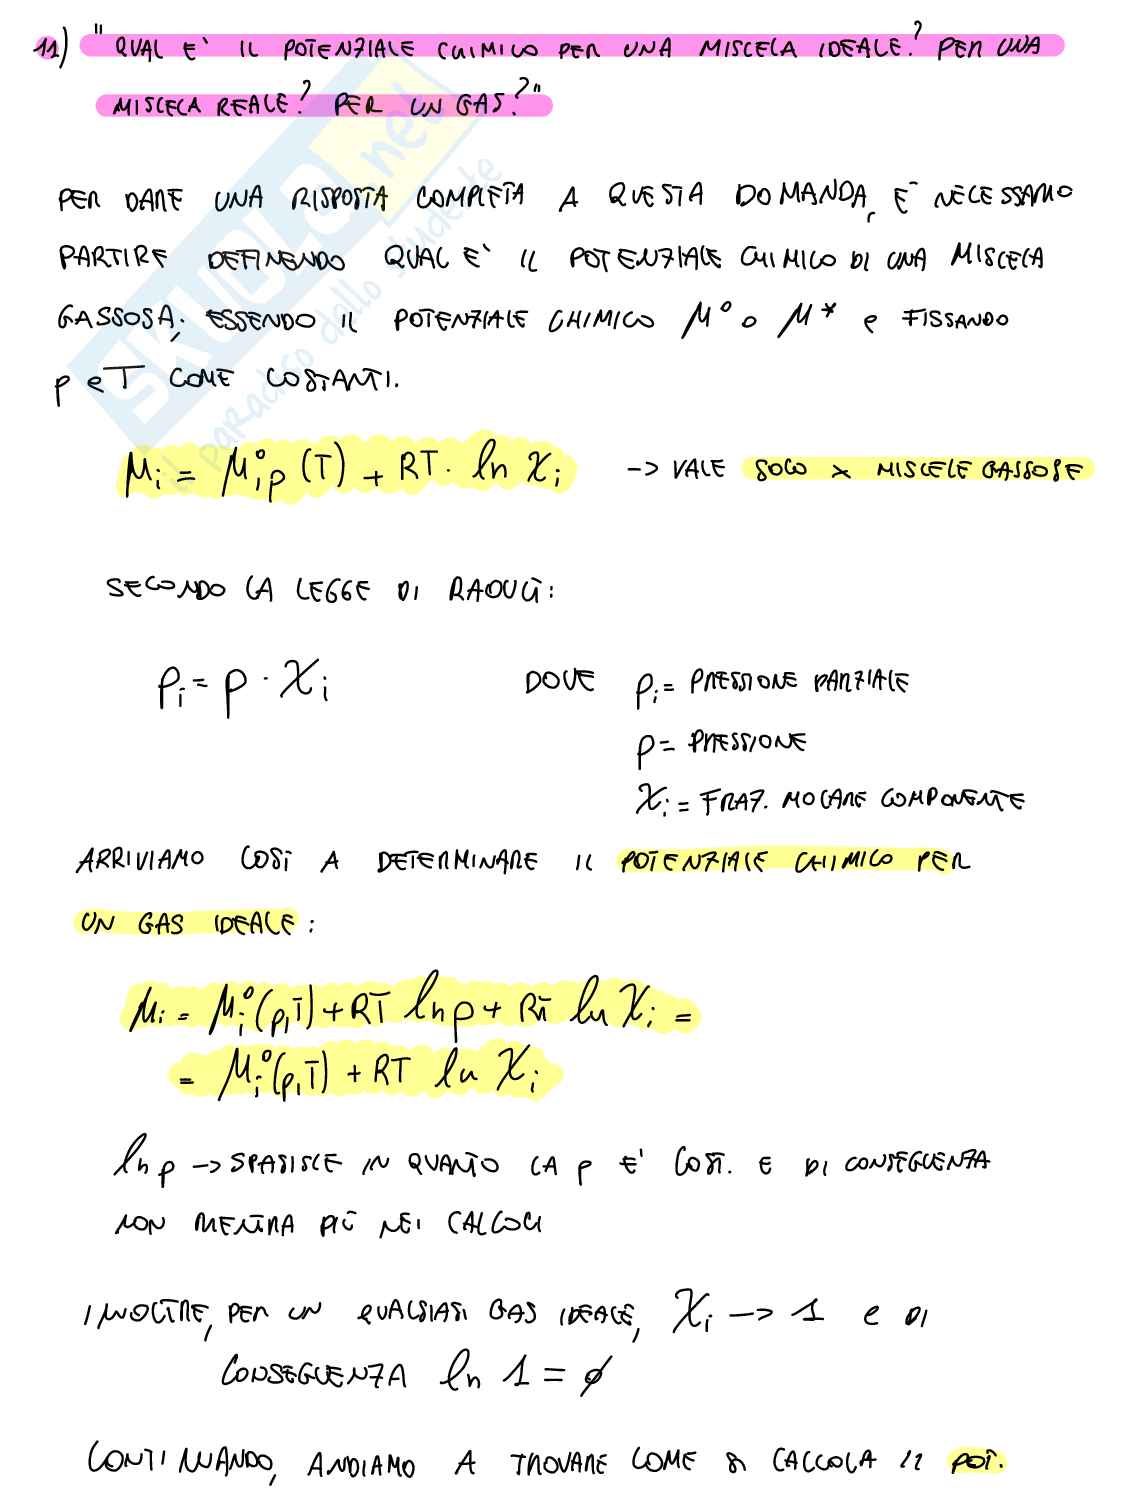 11) "QUAL E' IL POTENZIALE CHIMICO PER UNA MISCELA IDEALE? PER UNA
MISCELA REALE? PER UN GAS?"
PER DARE UNA RISPOSTA COMPLETA A QUESTA DOMANDA, E' NECESSARIO
PARTIRE DEFINENDO QUAL E' IL POTENZIALE CHIMICO DI UNA MISCELA
GASSOSA, ESSENDO IL POTENZIALE CHIMICO μ° o μ* e FISSANDO
p e T COME COSTANTI.
μi = μ°ip (T) + RT · ln χi -> VALE SOLO x MISCELE GASSOSE
SECONDO LA LEGGE DI RAOULT:
pi = p · χi DOVE pi = PRESSIONE PARZIALE
p = PRESSIONE
χi = FRAZ. MOLARE COMPONENTE
ARRIVIAMO COSÌ A DETERMINARE IL POTENZIALE CHIMICO PER
UN GAS IDEALE:
μi = μi°(p,T) + RT ln p + RT ln χi =
= μi°(p,T) + RT ln χi
ln p -> SPARISCE IN QUANTO LA p E' COST. E DI CONSEGUENZA
NON RIENTRA PIÙ NEI CALCOLI
INOLTRE, PER UN QUALSIASI GAS IDEALE, χi -> 1 e DI
CONSEGUENZA ln 1 = ∅
CONTINUANDO, ANDIAMO A TROVARE COME SI CALCOLA IL POT.
SKUOLA.net
il paradiso dello studente